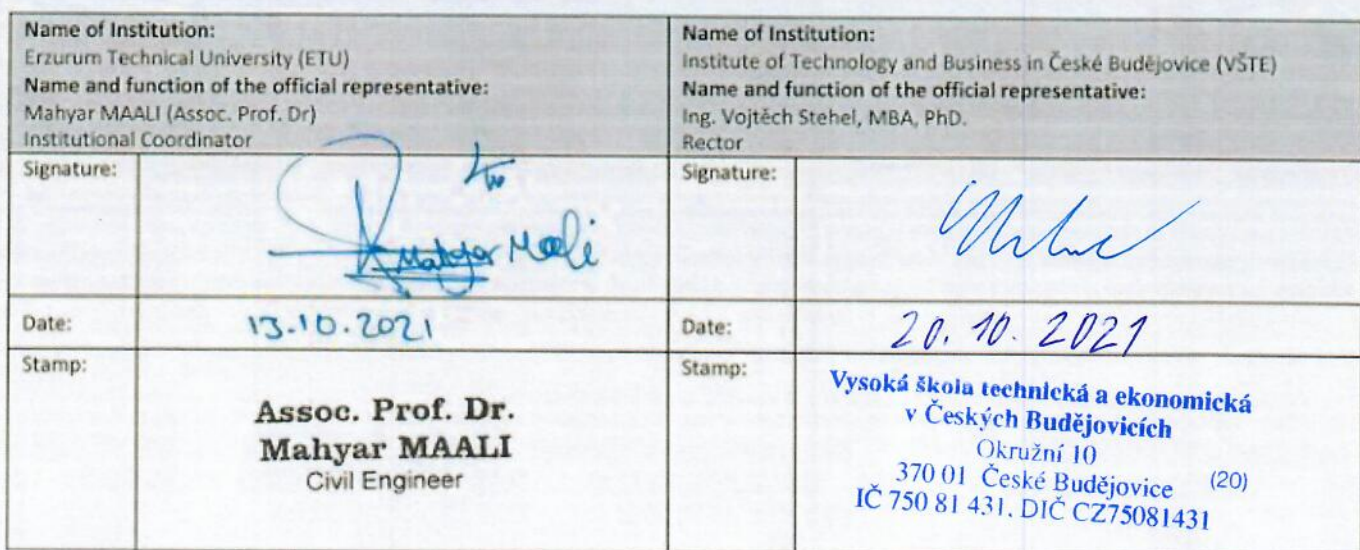 Name of Institution:
Erzurum Technical University (ETU)
Name and function of the official representative:
Mahyar MAALI (Assoc. Prof. Dr)
Institutional Coordinator
Signature:
Mahyar Maali
Date:
13.10.2021
Stamp:
Assoc. Prof. Dr.
Mahyar MAALI
Civil Engineer
Name of Institution:
Institute of Technology and Business in České Budějovice (VŠTE)
Name and function of the official representative:
Ing. Vojtěch Stehel, MBA, PhD.
Rector
Signature:
Date:
20. 10. 2021
Stamp:
Vysoká škola technická a ekonomická
v Českých Budějovicích
Okružní 10
370 01 České Budějovice (20)
IČ 750 81 431, DIČ CZ75081431